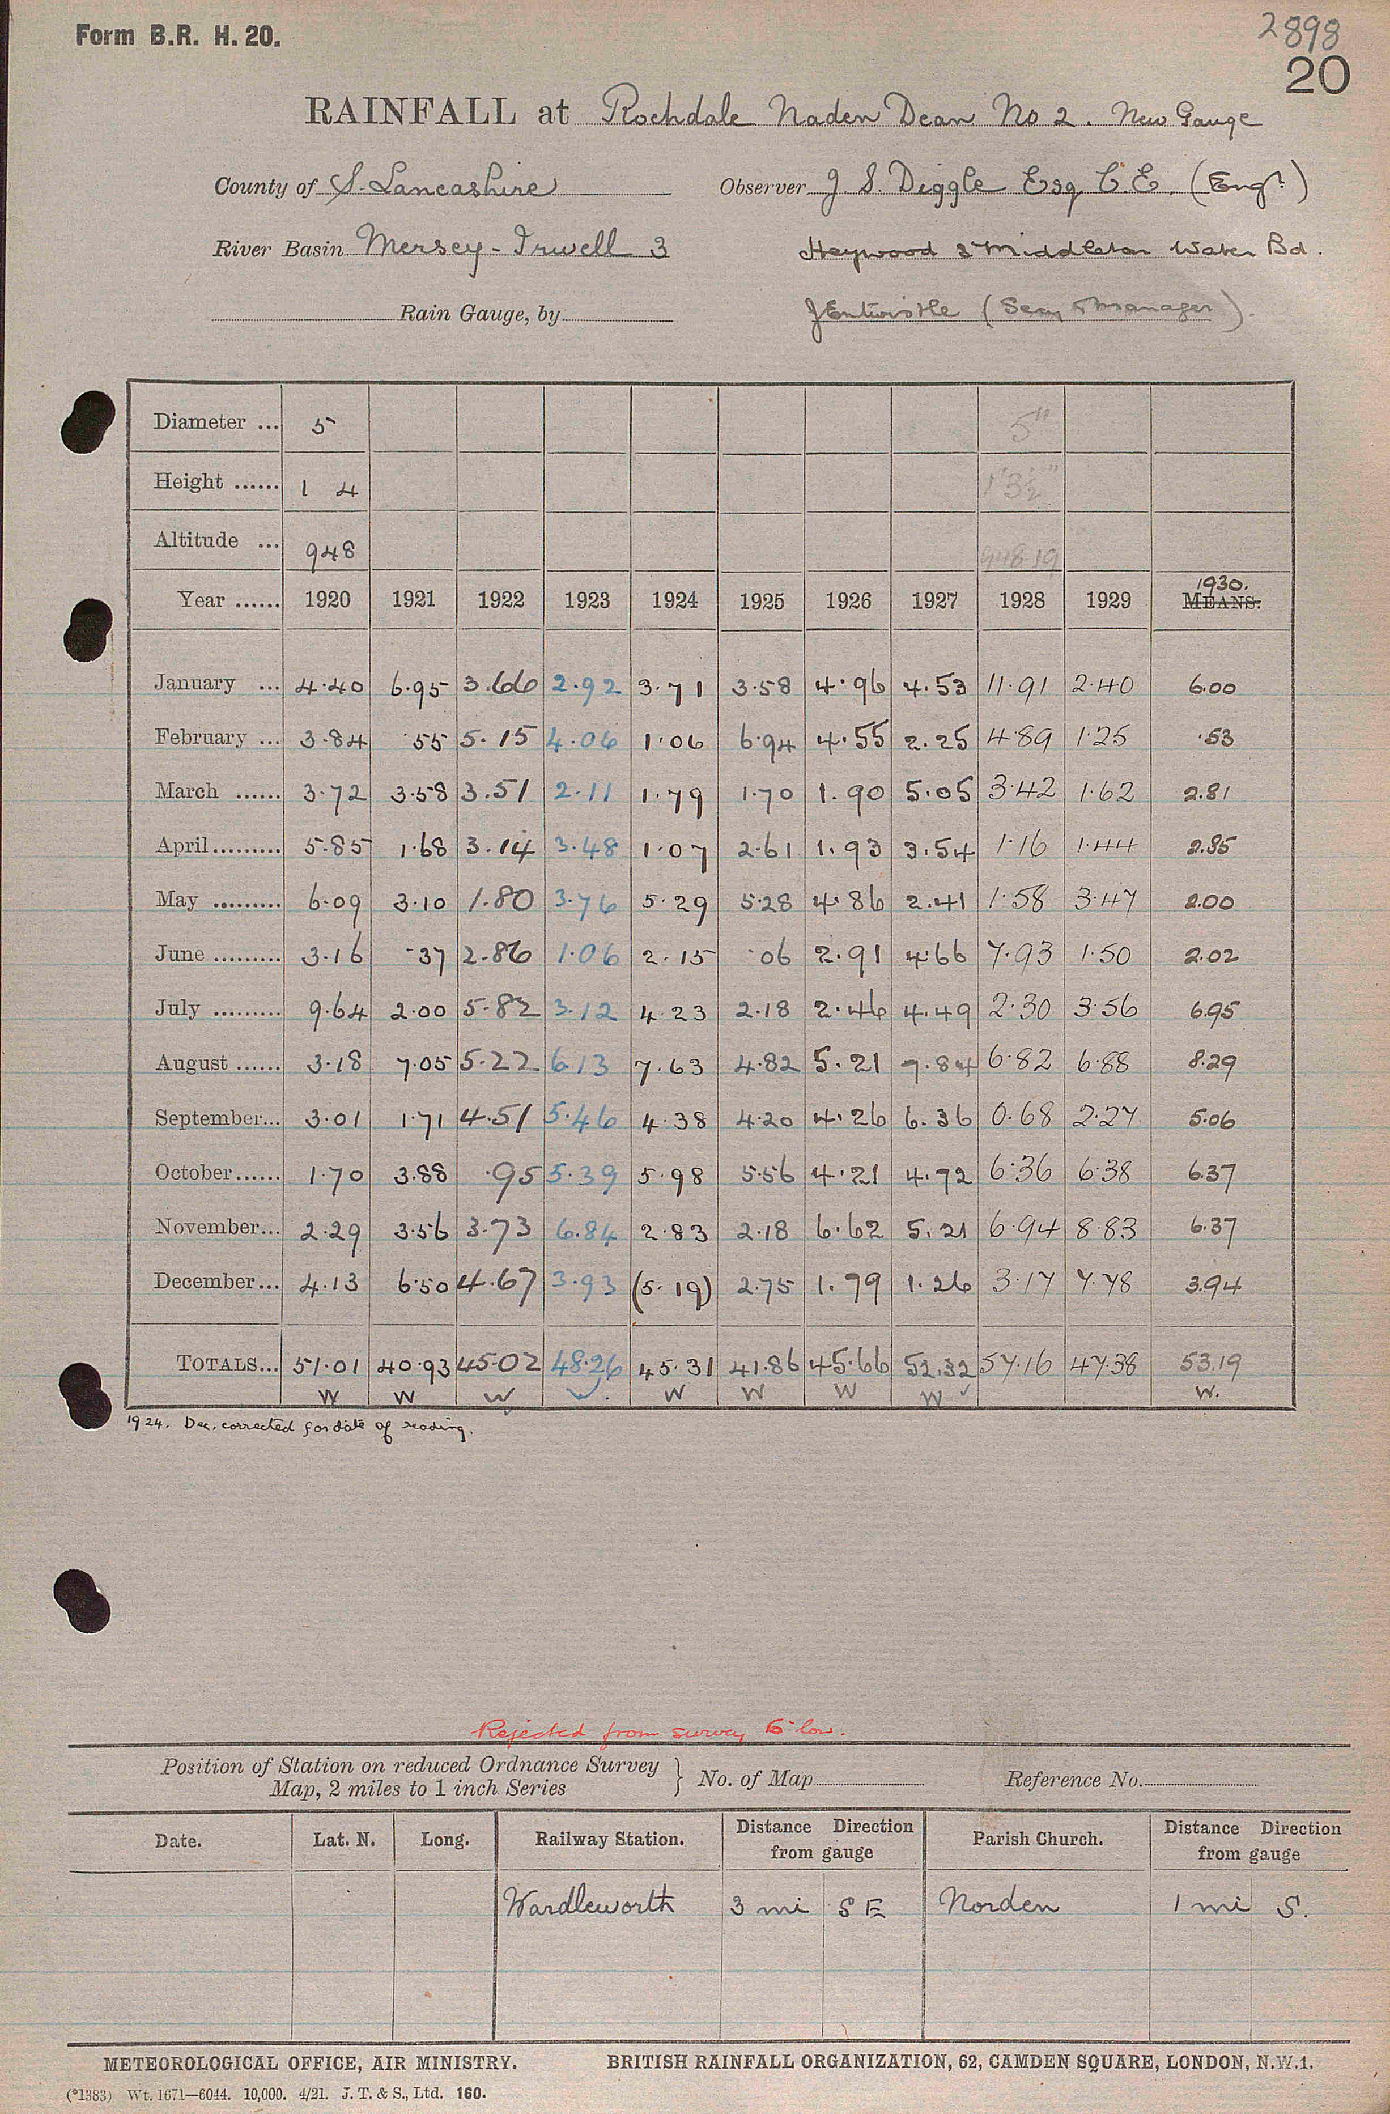 Form B.R. H. 20.
2898
20
RAINFALL at Rochdale Naden Dean No 2. New Gauge
County of S. Lancashire Observer J S. Diggle Esq C.E. (Engr.)
River Basin Mersey - Irwell 3 Heywood & Middleton Water Bd.
Rain Gauge, by J Entwistle (Secy & Manager).
Diameter ... 5 5"
Height ...... 1 4 1' 3½"
Altitude ... 948 948.19
1930.
Year ...... 1920 1921 1922 1923 1924 1925 1926 1927 1928 1929 MEANS.
January ... 4.40 6.95 3.66 2.92 3.71 3.58 4.96 4.53 11.91 2.40 6.00
February ... 3.84 .55 5.15 4.06 1.06 6.94 4.55 2.25 4.89 1.25 .53
March ...... 3.72 3.58 3.51 2.11 1.79 1.70 1.90 5.05 3.42 1.62 2.81
April ......... 5.85 1.68 3.14 3.48 1.07 2.61 1.93 3.54 1.16 1.44 2.85
May ......... 6.09 3.10 1.80 3.76 5.29 5.28 4.86 2.41 1.58 3.47 2.00
June ......... 3.16 .37 2.86 1.06 2.15 .06 2.91 4.66 7.93 1.50 2.02
July ......... 9.64 2.00 5.82 3.12 4.23 2.18 2.46 4.49 2.30 3.56 6.95
August ...... 3.18 7.05 5.22 6.13 7.63 4.82 5.21 7.84 6.82 6.88 8.29
September... 3.01 1.71 4.51 5.46 4.38 4.20 4.26 6.36 0.68 2.27 5.06
October...... 1.70 3.88 .95 5.39 5.98 5.56 4.21 4.72 6.36 6.38 6.37
November... 2.29 3.56 3.73 6.84 2.83 2.18 6.62 5.21 6.94 8.83 6.37
December... 4.13 6.50 4.67 3.93 (5.19) 2.75 1.79 1.26 3.17 7.78 3.94
TOTALS... 51.01 40.93 45.02 48.26 45.31 41.86 45.66 52.32 57.16 47.38 53.19
W W W W W W W W
1924. Dec. corrected for date of reading.
Rejected from survey 6 low.
Position of Station on reduced Ordnance Survey
Map, 2 miles to 1 inch Series } No. of Map Reference No.
Date. Lat. N. Long. Railway Station. Distance Direction from gauge Parish Church. Distance Direction from gauge
Wardleworth 3 mi S E Norden 1 mi S.
METEOROLOGICAL OFFICE, AIR MINISTRY. BRITISH RAINFALL ORGANIZATION, 62, CAMDEN SQUARE, LONDON, N.W.1.
(*1383) Wt. 1671—6044. 10,000. 4/21. J. T. & S., Ltd. 160.